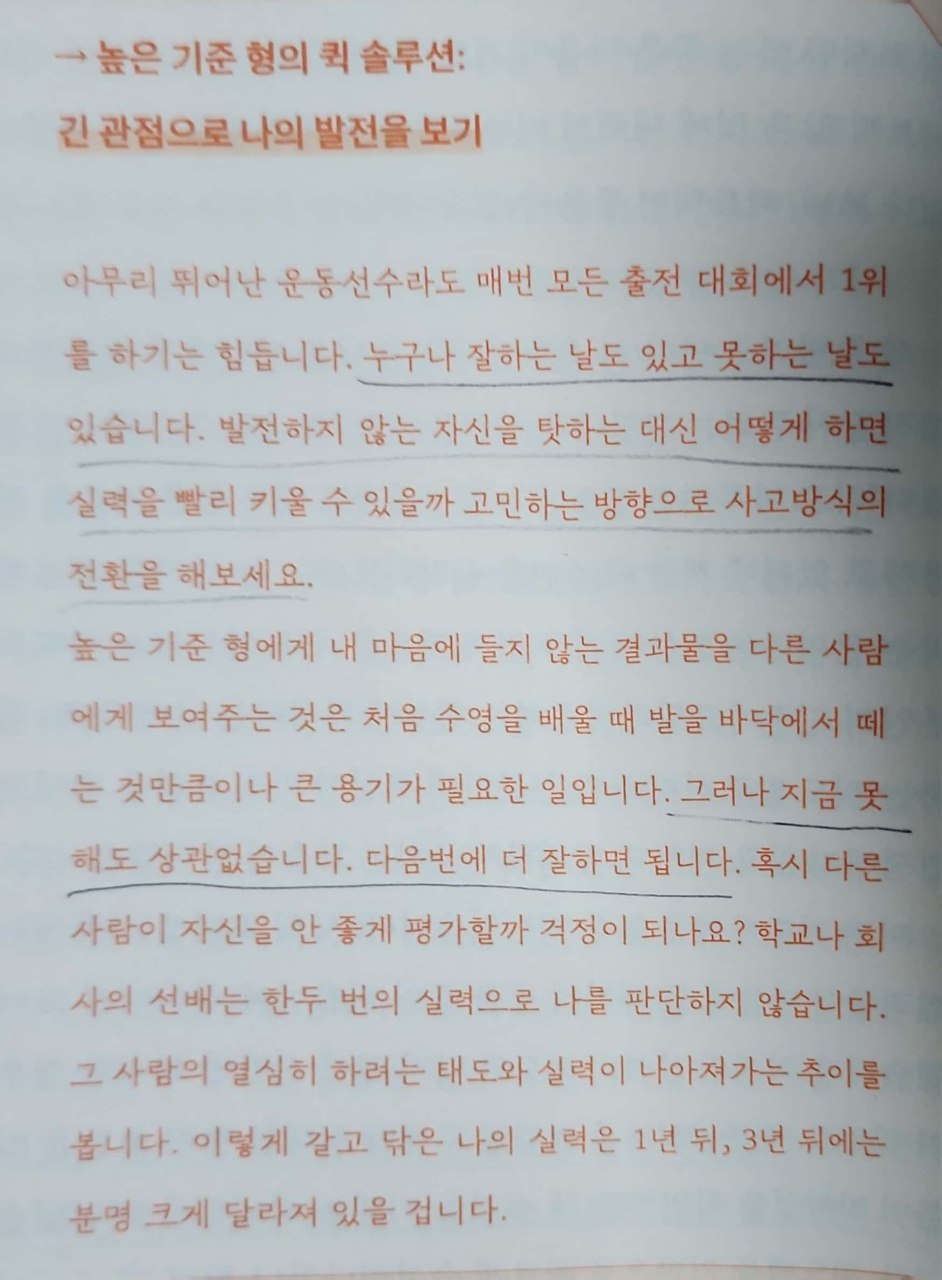 → 높은 기준 형의 퀵 솔루션:
긴 관점으로 나의 발전을 보기
아무리 뛰어난 운동선수라도 매번 모든 출전 대회에서 1위
를 하기는 힘듭니다. 누구나 잘하는 날도 있고 못하는 날도
있습니다. 발전하지 않는 자신을 탓하는 대신 어떻게 하면
실력을 빨리 키울 수 있을까 고민하는 방향으로 사고방식의
전환을 해보세요.
높은 기준 형에게 내 마음에 들지 않는 결과물을 다른 사람
에게 보여주는 것은 처음 수영을 배울 때 발을 바닥에서 떼
는 것만큼이나 큰 용기가 필요한 일입니다. 그러나 지금 못
해도 상관없습니다. 다음번에 더 잘하면 됩니다. 혹시 다른
사람이 자신을 안 좋게 평가할까 걱정이 되나요? 학교나 회
사의 선배는 한두 번의 실력으로 나를 판단하지 않습니다.
그 사람의 열심히 하려는 태도와 실력이 나아져가는 추이를
봅니다. 이렇게 갈고 닦은 나의 실력은 1년 뒤, 3년 뒤에는
분명 크게 달라져 있을 겁니다.